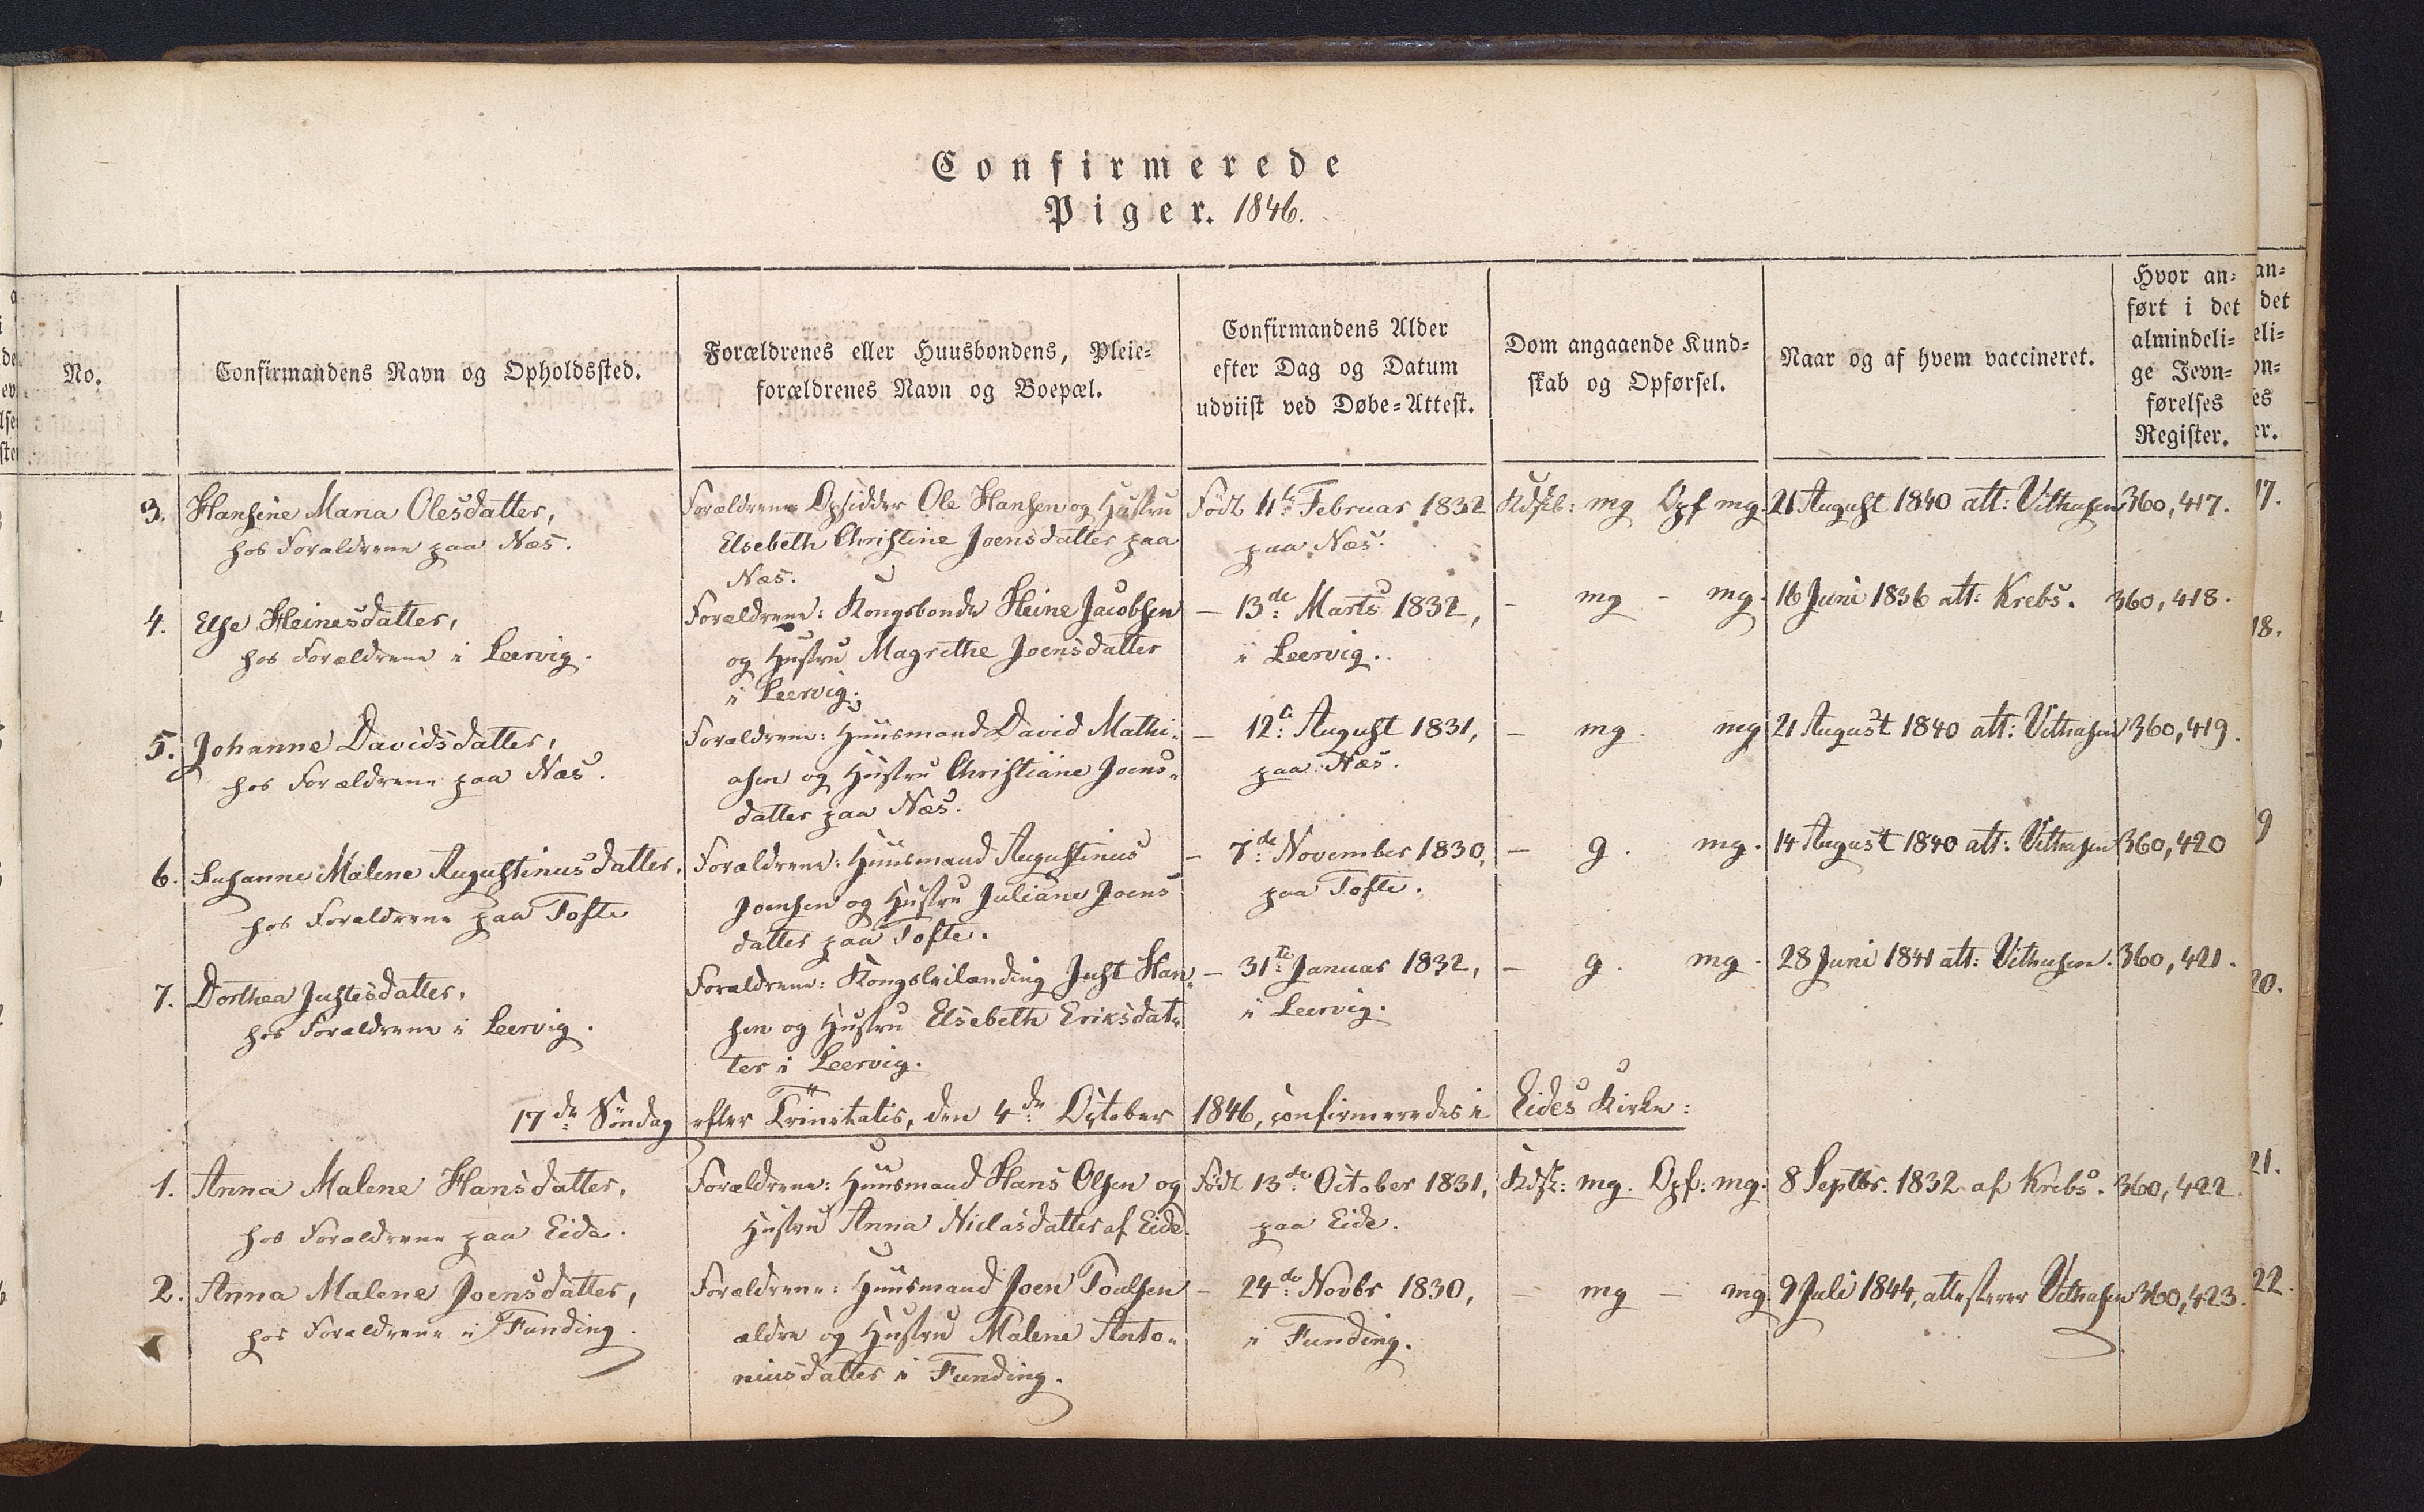 Confirmerede
Piger. 1846.
No.
Confirmandens Navn og Opholdssted.
Forældrenes eller Huusbondens, Pleie-
forældrenes Navn og Boepæl.
Confirmandens Alder
efter Dag og Datum
udviist ved Døbe-Attest.
Dom angaaende Kund-
skab og Opførsel.
Naar og af hvem vaccineret.
Hvor an-
ført i det
almindeli-
ge Jevn-
førelses
Register.
3. Hansine Maria Olesdatter,
hos Forældrene paa Næs.
Forældrene Opsidder Ole Hansen og Hustru
Elsebeth Christine Joensdatter paa
Næs.
Født 4de Februar 1832
paa Næs.
Kdskb: mg Opf mg.
21 August 1840 att:
360,417.
4. Else Heinesdatter,
hos Forældrene i Leervig.
Forældrene: Kongsbonde Heine Jacobsen
og Hustru Magrethe Joensdatter
i Leervig.
- 13de Marts 1832,
i Leervig.
- mg - mg.
16 Juni 1836 att: Krebs.
360,418.
5. Johanne Davidsdatter,
hos Forældrene paa Næs.
Forældrene: Huusmand David Mathi-
asen og Hustru Christiane Joens-
datter paa Næs.
- 12te August 1831,
paa Næs.
- mg. mg
21 August 1840 att:
360,419.
6. Susanne Malene Augustinusdatter.
hos Forældrene paa Tofte
Forældrene: Huusmand Augustinus
Joensen og Hustru Juliane Joens
datter paa Tofte.
- 7de November 1830,
paa Tofte.
- g. mg.
14 August 1840 att:
360,420
7. Dorthea Justesdatter,
hos Forældrene i Leervig.
Forældrene: Kongsleilænding Just Han-
sen og Hustru Elsebeth Eriksdat-
ter i Leervig.
- 31te Januar 1832,
i Leervig.
- g. mg.
28 Juni 1841 att:
360,421.
17de Søndag efter Trinitatis, den 4de October 1846, confirmeredes i Eides Kirke:
1. Anna Malene Hansdatter,
hos Forældrene paa Eide.
Forældrene: Huusmand Hans Olsen og
Hustru Anna Niclasdatter af Eide.
Født 13de October 1831,
paa Eide.
Kdsk: mg. Opf: mg.
8 Septbr. 1832 af Krebs.
360,422.
2. Anna Malene Joensdatter,
hos Forældrene i Funding.
Forældrene: Huusmand Joen Poulsen
ældre og Hustru Malene Anto-
niusdatter i Funding.
- 24de Novbr 1830,
i Funding.
- mg - mg
9 Juli 1844, attesterer
360,423.
an-
det
eli-
vn-
es
er.
17.
18.
9
20.
21.
22.